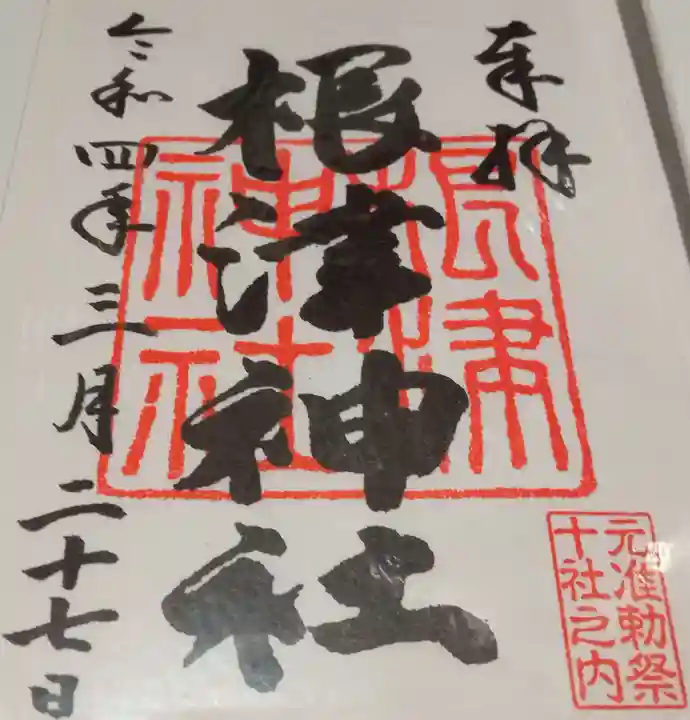 奉拝
根津神社
令和四年三月二十七日
根津
神社
元准勅祭
十社之内